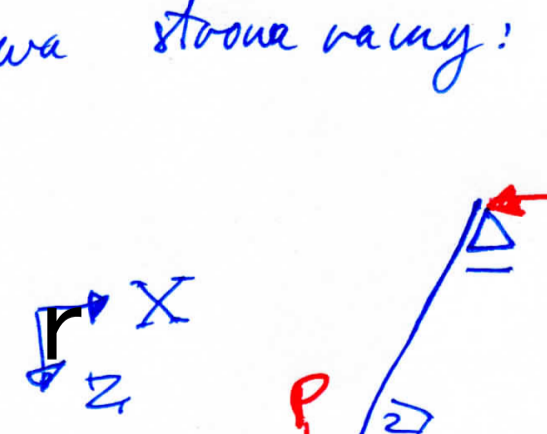 wa strona ramy:
r X
Z
P
2